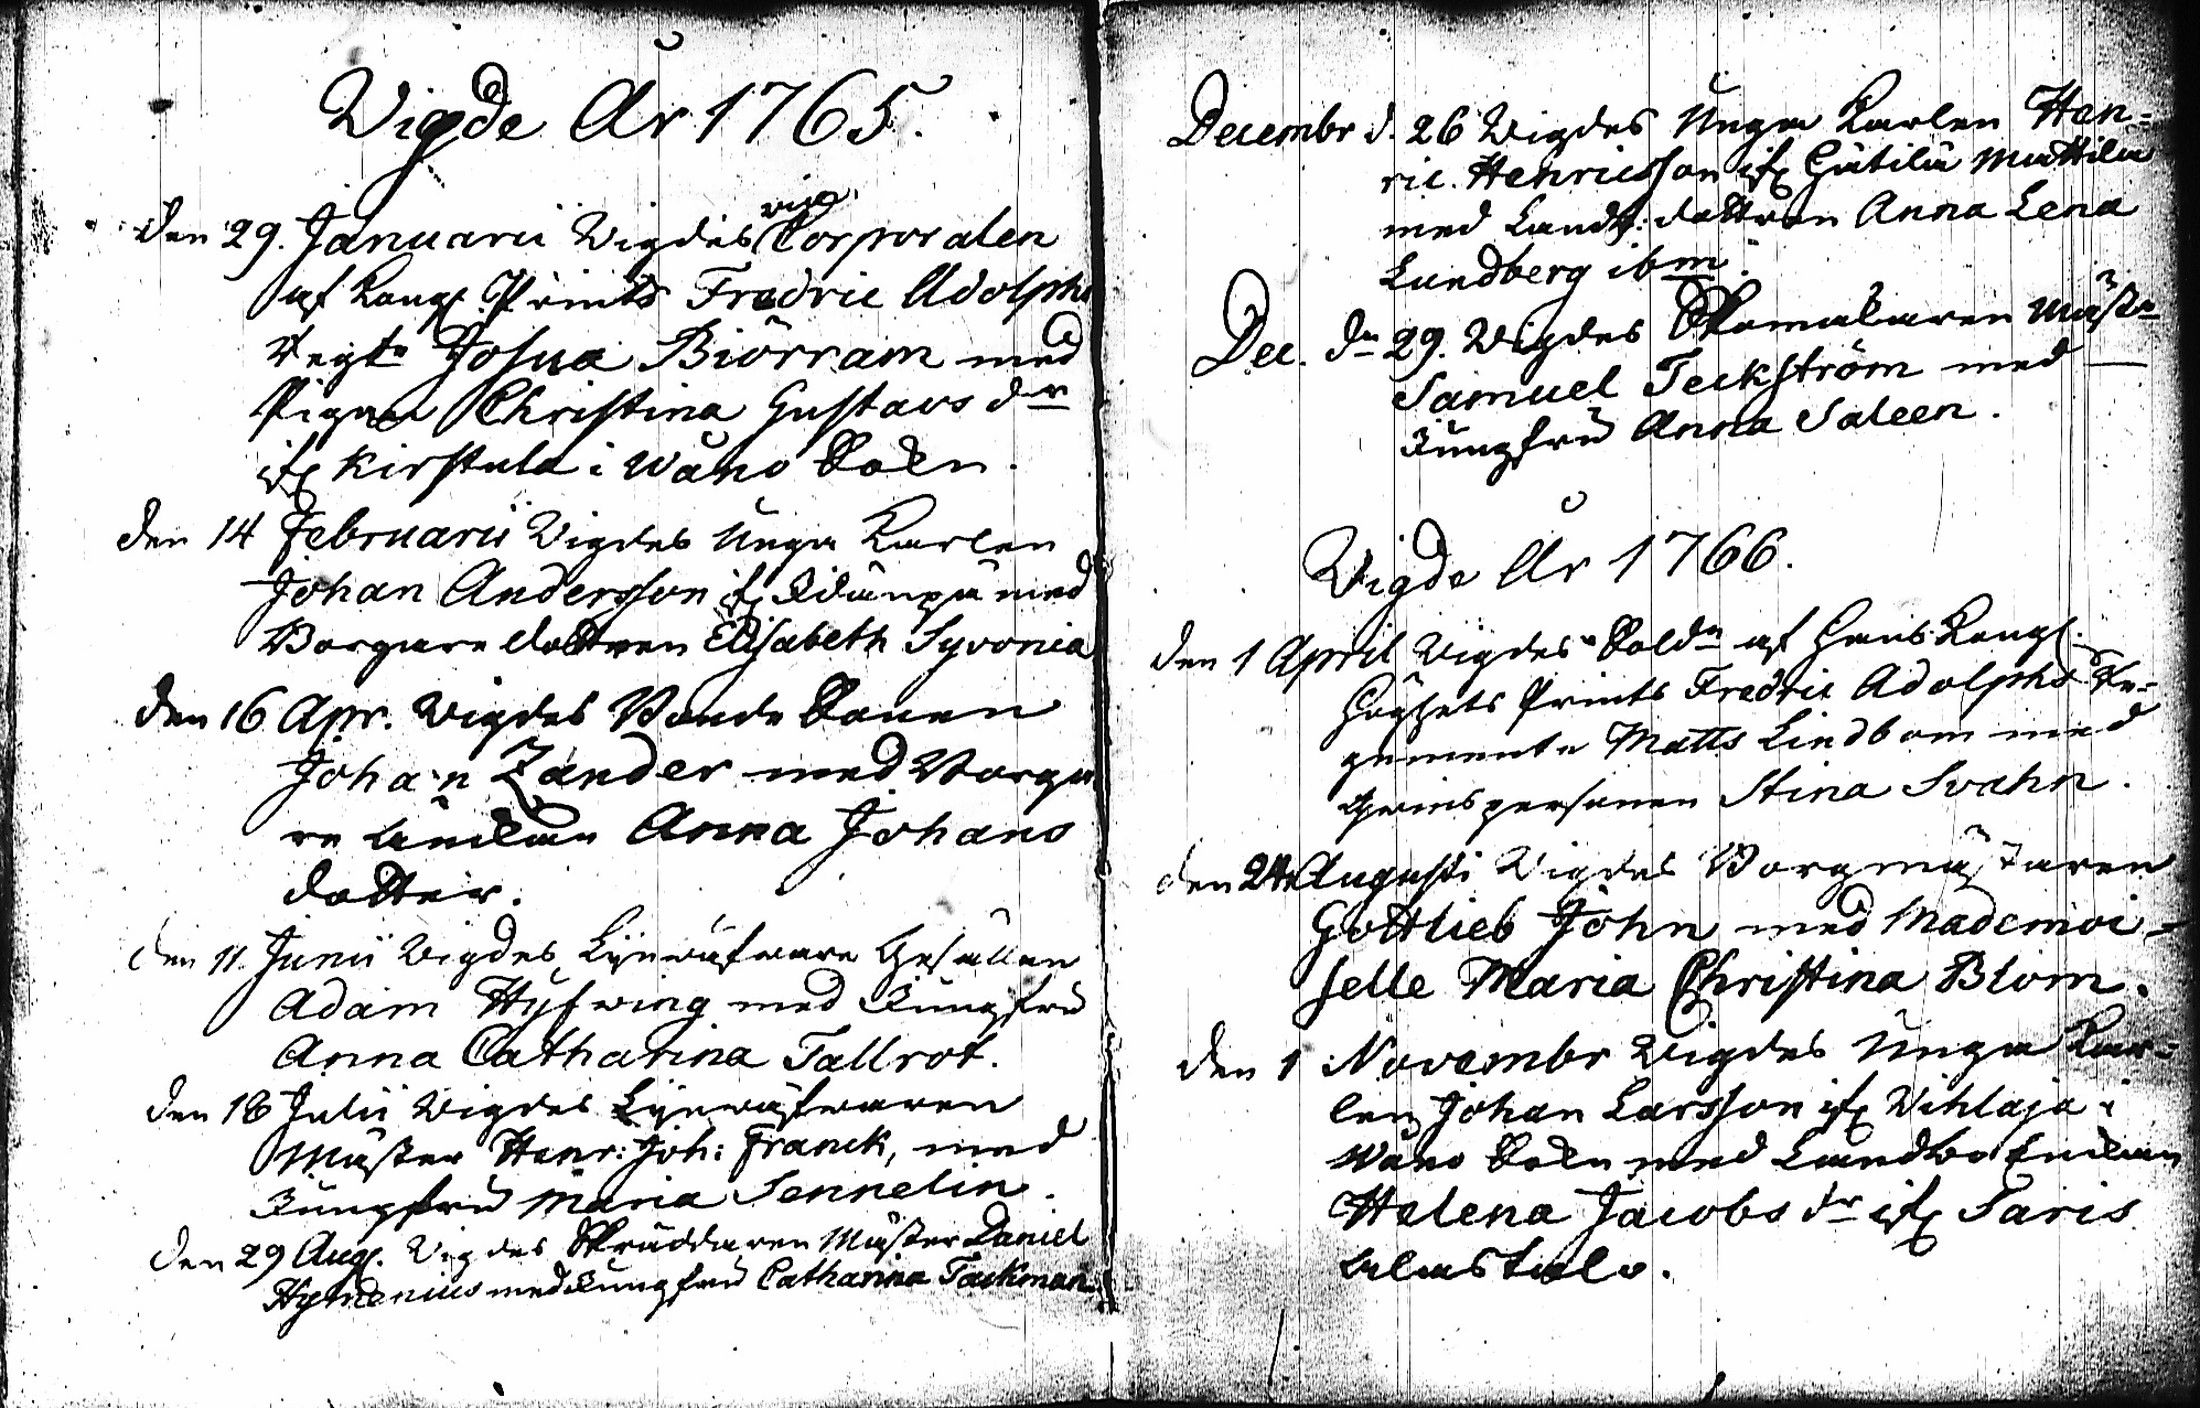 Vigde År 1765.
den 29. Januarii Vigdes vice Corporalen
af Kongl. Prints Fredric Adolphs
Regte Josua Biörram med
Pigan Christina Gustavs dr
ifr Kirstula i Wåno Sokn.
den 14 Februarii Vigdes Unga Karlen
Johan Andersson ifr Idänpä med
Borgare dottren Elisabeth Syvonia
den 16 Apr. Vigdes Bonde Sonen
Johan Zander med Borga
re Enkan Anna Johans
dotter.
den 11. Junii Vigdes Linwäfvare Gesällen
Adam Hyfwing med Jungfru
Anna Catharina Tallrot.
den 18 Julii Vigdes Linwäfvaren
Mäster Henr: Joh: Franck, med
Jungfru Maria Sennelin.
den 29 Aug. Vigdes Skräddaren Mäster Daniel
Hymenius med Jungfru Catharina Tackman.
Decembr d. 26 Vigdes Unga Karlen Hen=
ric Henricsson ifr Hätilä Mattila
med Landb: dottren Anna Lena
Lundberg ibm.
Dec. dn 29. Vigdes Skomakaren Mästn
Samuel Teckström med
Jungfru Anna Saleen.
Vigde År 1766.
den 1 April Vigdes Soldn af Hans Kongl.
Höghets Prints Fredric Adolphs Re=
gemente Matts Lindbom med
Qwinspersonen Stina Svahn.
den 24 Augusti Vigdes Borgmästaren
Gottlieb John med Mademoi=
selle Maria Christina Blom.
den 1 Novembr Vigdes Unga Kar=
len Johan Larsson ifr Wihlaja i
Wåno Sokn med Landbo Enkan
Helena Jacobs dr ifr Saris